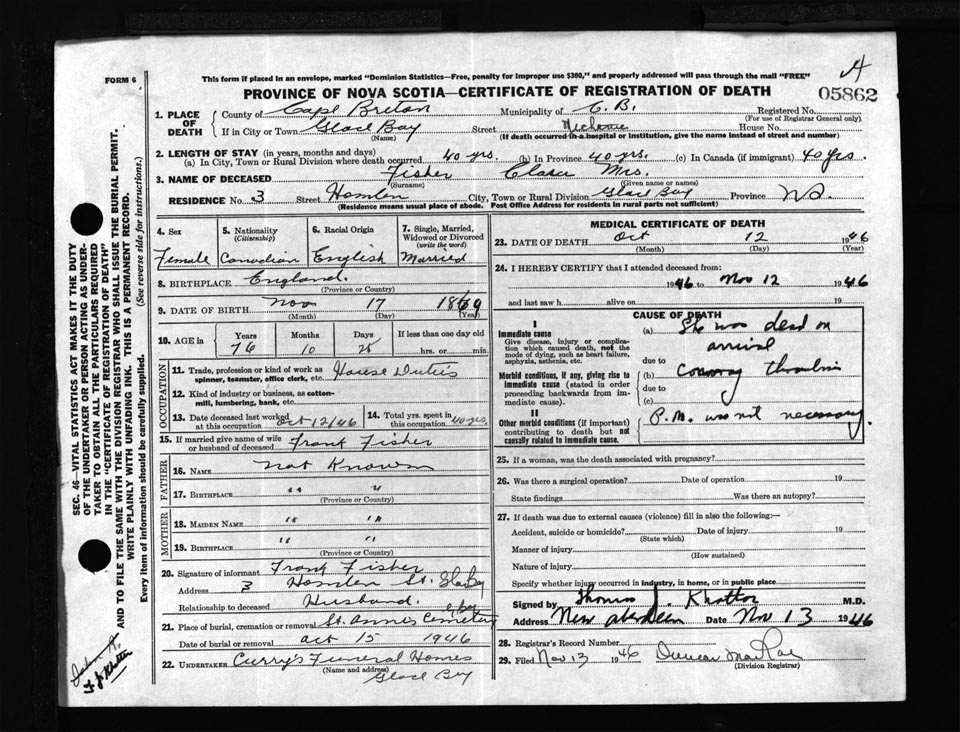 FORM 6
This form if placed in an envelope, marked "Dominion Statistics—Free, penalty for improper use $300," and properly addressed will pass through the mail "FREE"
PROVINCE OF NOVA SCOTIA—CERTIFICATE OF REGISTRATION OF DEATH
05862
1. PLACE OF DEATH
County of Cape Breton Municipality of C. B. Registered No.
(For use of Registrar General only)
If in City or Town Glace Bay Street House No.
(Name) (If death occurred in a hospital or institution, give the name instead of street and number)
2. LENGTH OF STAY (in years, months and days)
(a) In City, Town or Rural Division where death occurred 40 yrs. (b) In Province 40 yrs. (c) In Canada (if immigrant) 40 yrs.
3. NAME OF DECEASED Fisher Mrs.
(Surname) (Given name or names)
RESIDENCE No. 3 Street City, Town or Rural Division Glace Bay Province N.S.
(Residence means usual place of abode. Post Office Address for residents in rural parts not sufficient)
4. Sex 5. Nationality (Citizenship) 6. Racial Origin 7. Single, Married, Widowed or Divorced (write the word)
Female Canadian English Married
8. BIRTHPLACE England.
(Province or Country)
9. DATE OF BIRTH Nov 17 1869
(Month) (Day) (Year)
10. AGE in Years Months Days If less than one day old
76 10 25 hrs. or min.
OCCUPATION
11. Trade, profession or kind of work as spinner, teamster, office clerk, etc. House Duties
12. Kind of industry or business, as cotton-mill, lumbering, bank, etc.
13. Date deceased last worked at this occupation Oct 12/46 14. Total yrs. spent in this occupation 40 yrs.
15. If married give name of wife or husband of deceased Frank Fisher
FATHER
16. NAME Not Known
17. BIRTHPLACE " "
(Province or Country)
MOTHER
18. MAIDEN NAME " "
19. BIRTHPLACE " "
(Province or Country)
20. Signature of informant Frank Fisher
Address 3 St. Glace Bay
Relationship to deceased Husband.
21. Place of burial, cremation or removal St. Annes Cemetery
Date of burial or removal Oct 15 1946
22. UNDERTAKER Curry's Funeral Homes
(Name and address)
Glace Bay
MEDICAL CERTIFICATE OF DEATH
23. DATE OF DEATH Oct 12 1946
(Month) (Day) (Year)
24. I HEREBY CERTIFY that I attended deceased from:
1946 to Nov 12 1946
and last saw h alive on 19
CAUSE OF DEATH
I
Immediate cause
Give disease, injury or complication which caused death, not the mode of dying, such as heart failure, asphyxia, asthenia, etc.
(a) She was dead on arrival
due to
Morbid conditions, if any, giving rise to immediate cause (stated in order proceeding backwards from immediate cause).
(b) Coronary thrombosis
due to
(c)
II
Other morbid conditions (if important) contributing to death but not causally related to immediate cause.
P.M. was not necessary
25. If a woman, was the death associated with pregnancy?
26. Was there a surgical operation? Date of operation 19
State findings Was there an autopsy?
27. If death was due to external causes (violence) fill in also the following:—
Accident, suicide or homicide? Date of injury 19
(State which)
Manner of injury
(How sustained)
Nature of injury
Specify whether injury occurred in industry, in home, or in public place
Signed by Thomas J. Khattar M.D.
Address New Aberdeen Date Nov 13 1946
28. Registrar's Record Number
29. Filed Nov 13 1946 Duncan MacRae
(Division Registrar)
SEC. 46—VITAL STATISTICS ACT MAKES IT THE DUTY
OF THE UNDERTAKER OR PERSON ACTING AS UNDER-
TAKER TO OBTAIN ALL THE PARTICULARS REQUIRED
IN THE "CERTIFICATE OF REGISTRATION OF DEATH"
AND TO FILE THE SAME WITH THE DIVISION REGISTRAR WHO SHALL ISSUE THE BURIAL PERMIT.
WRITE PLAINLY WITH UNFADING INK. THIS IS A PERMANENT RECORD.
Every item of information should be carefully supplied. (See reverse side for instructions.)